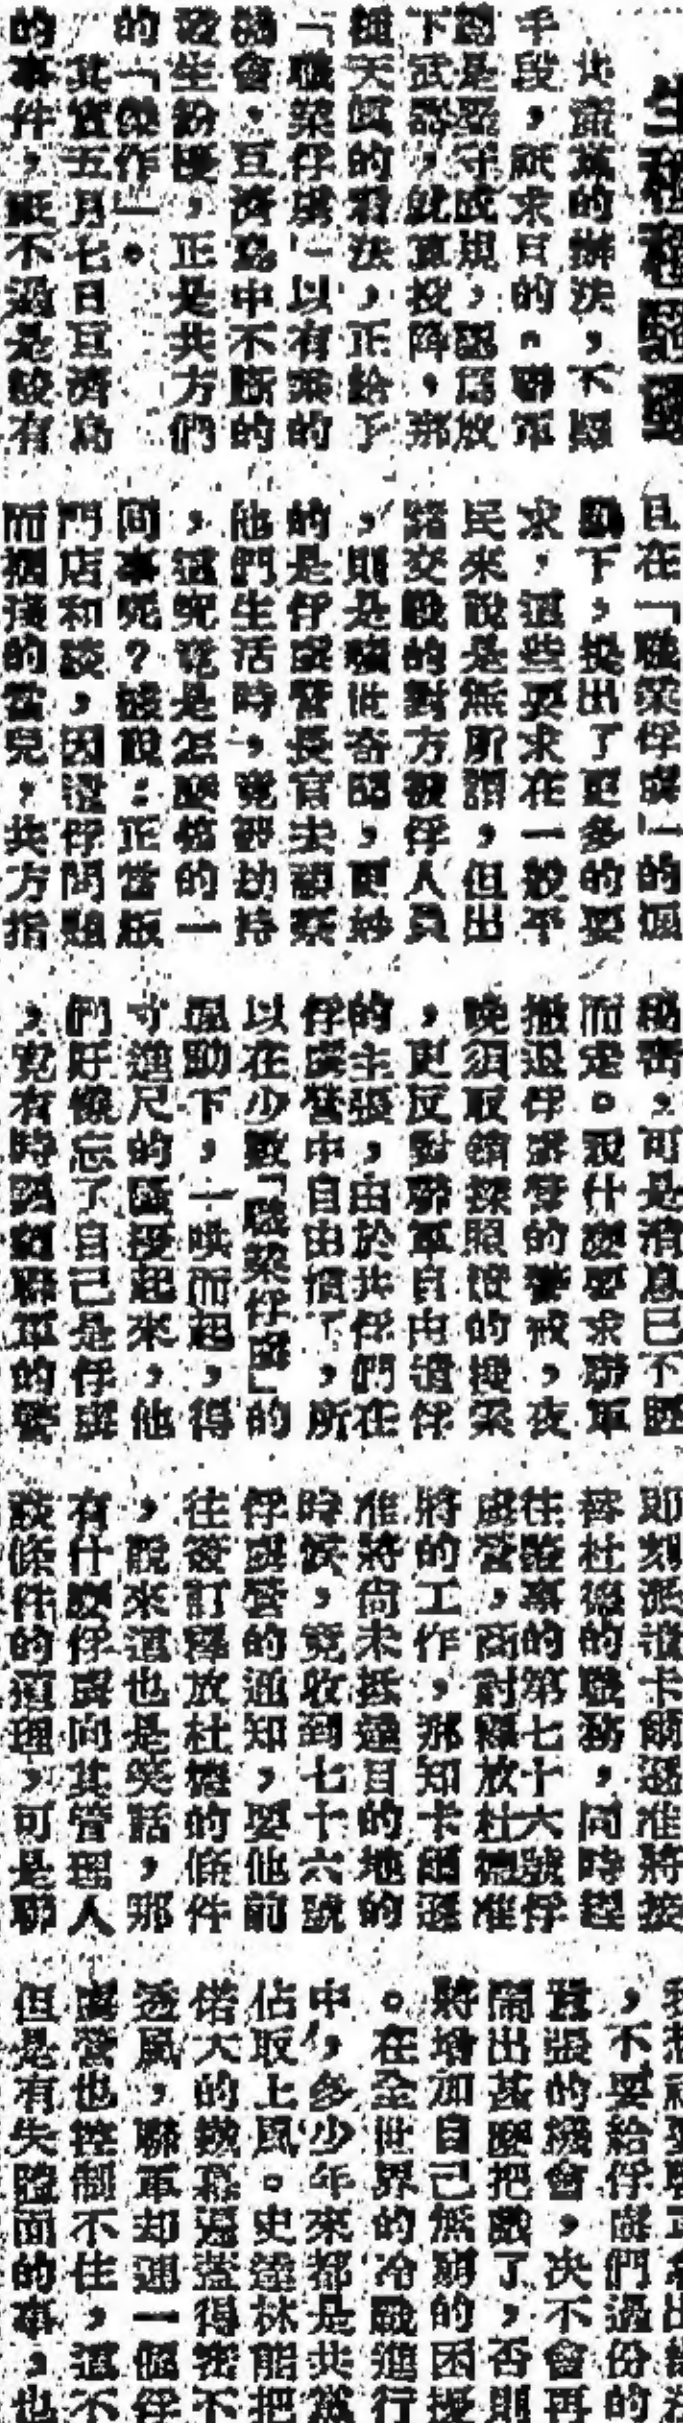 共黨的辦法,不顧
手段,祇求目的。聯軍
還是墨守成規,認為放
下武器,就算投降,那
種天真的看法,正給予
「職業俘虜」以有來的
機會,巨濟島中不斷的
發生紛擾,正是共方們
的「傑作」。
其實五月七日巨濟島
的事件,既不過是設有
且在「職業俘虜」的煽
動下,提出了更多的要
求,這些要求在一般平
民來說是無所謂,但出
諸交戰的對方被俘人員
,則是曠世奇聞,更妙
的是俘虜營長官去視察
他們生活時,竟被劫持
,這究竟是怎麼搞的一
回事呢?據說:正當版
門店和談,因遣俘問題
而擱淺的當兒,共方指
秘密,可是消息已不脛
而走。說什麼要求聯軍
撤退俘虜營的警戒,夜
晚須取銷探照燈的搜索
,更反對聯軍自由遣俘
的主張,由於共俘們在
俘虜營中自由慣了,所
以在少數「職業俘虜」的
煽動下,一哄而起,得
寸進尺的騷擾起來,他
們好像忘了自己是俘虜
,竟有時勒迫聯軍的警
即刻派遣卡爾遜准將接
替杜德的職務,同時趕
往肇事的第七十六號俘
虜營,商討釋放杜德准
將的工作,那知卡爾遜
准將尚未抵達目的地的
時候,竟收到七十六號
俘虜營的通知,要他前
往簽訂釋放杜德的條件
,說來這也是笑話,那
有什麼俘虜向其管理人
談條件的道理,可是聯
,不要給俘虜們過份的
囂張的機會,決不會再
鬧出甚麼把戲了,否則
將增加自己無窮的困擾
。在全世界的冷戰進行
中,多少年來都是共黨
佔取上風。史達林能把
偌大的鐵幕遮蓋得密不
透風,聯軍卻連一個俘
虜營也控制不住,這不
但是有失臉面的事,也